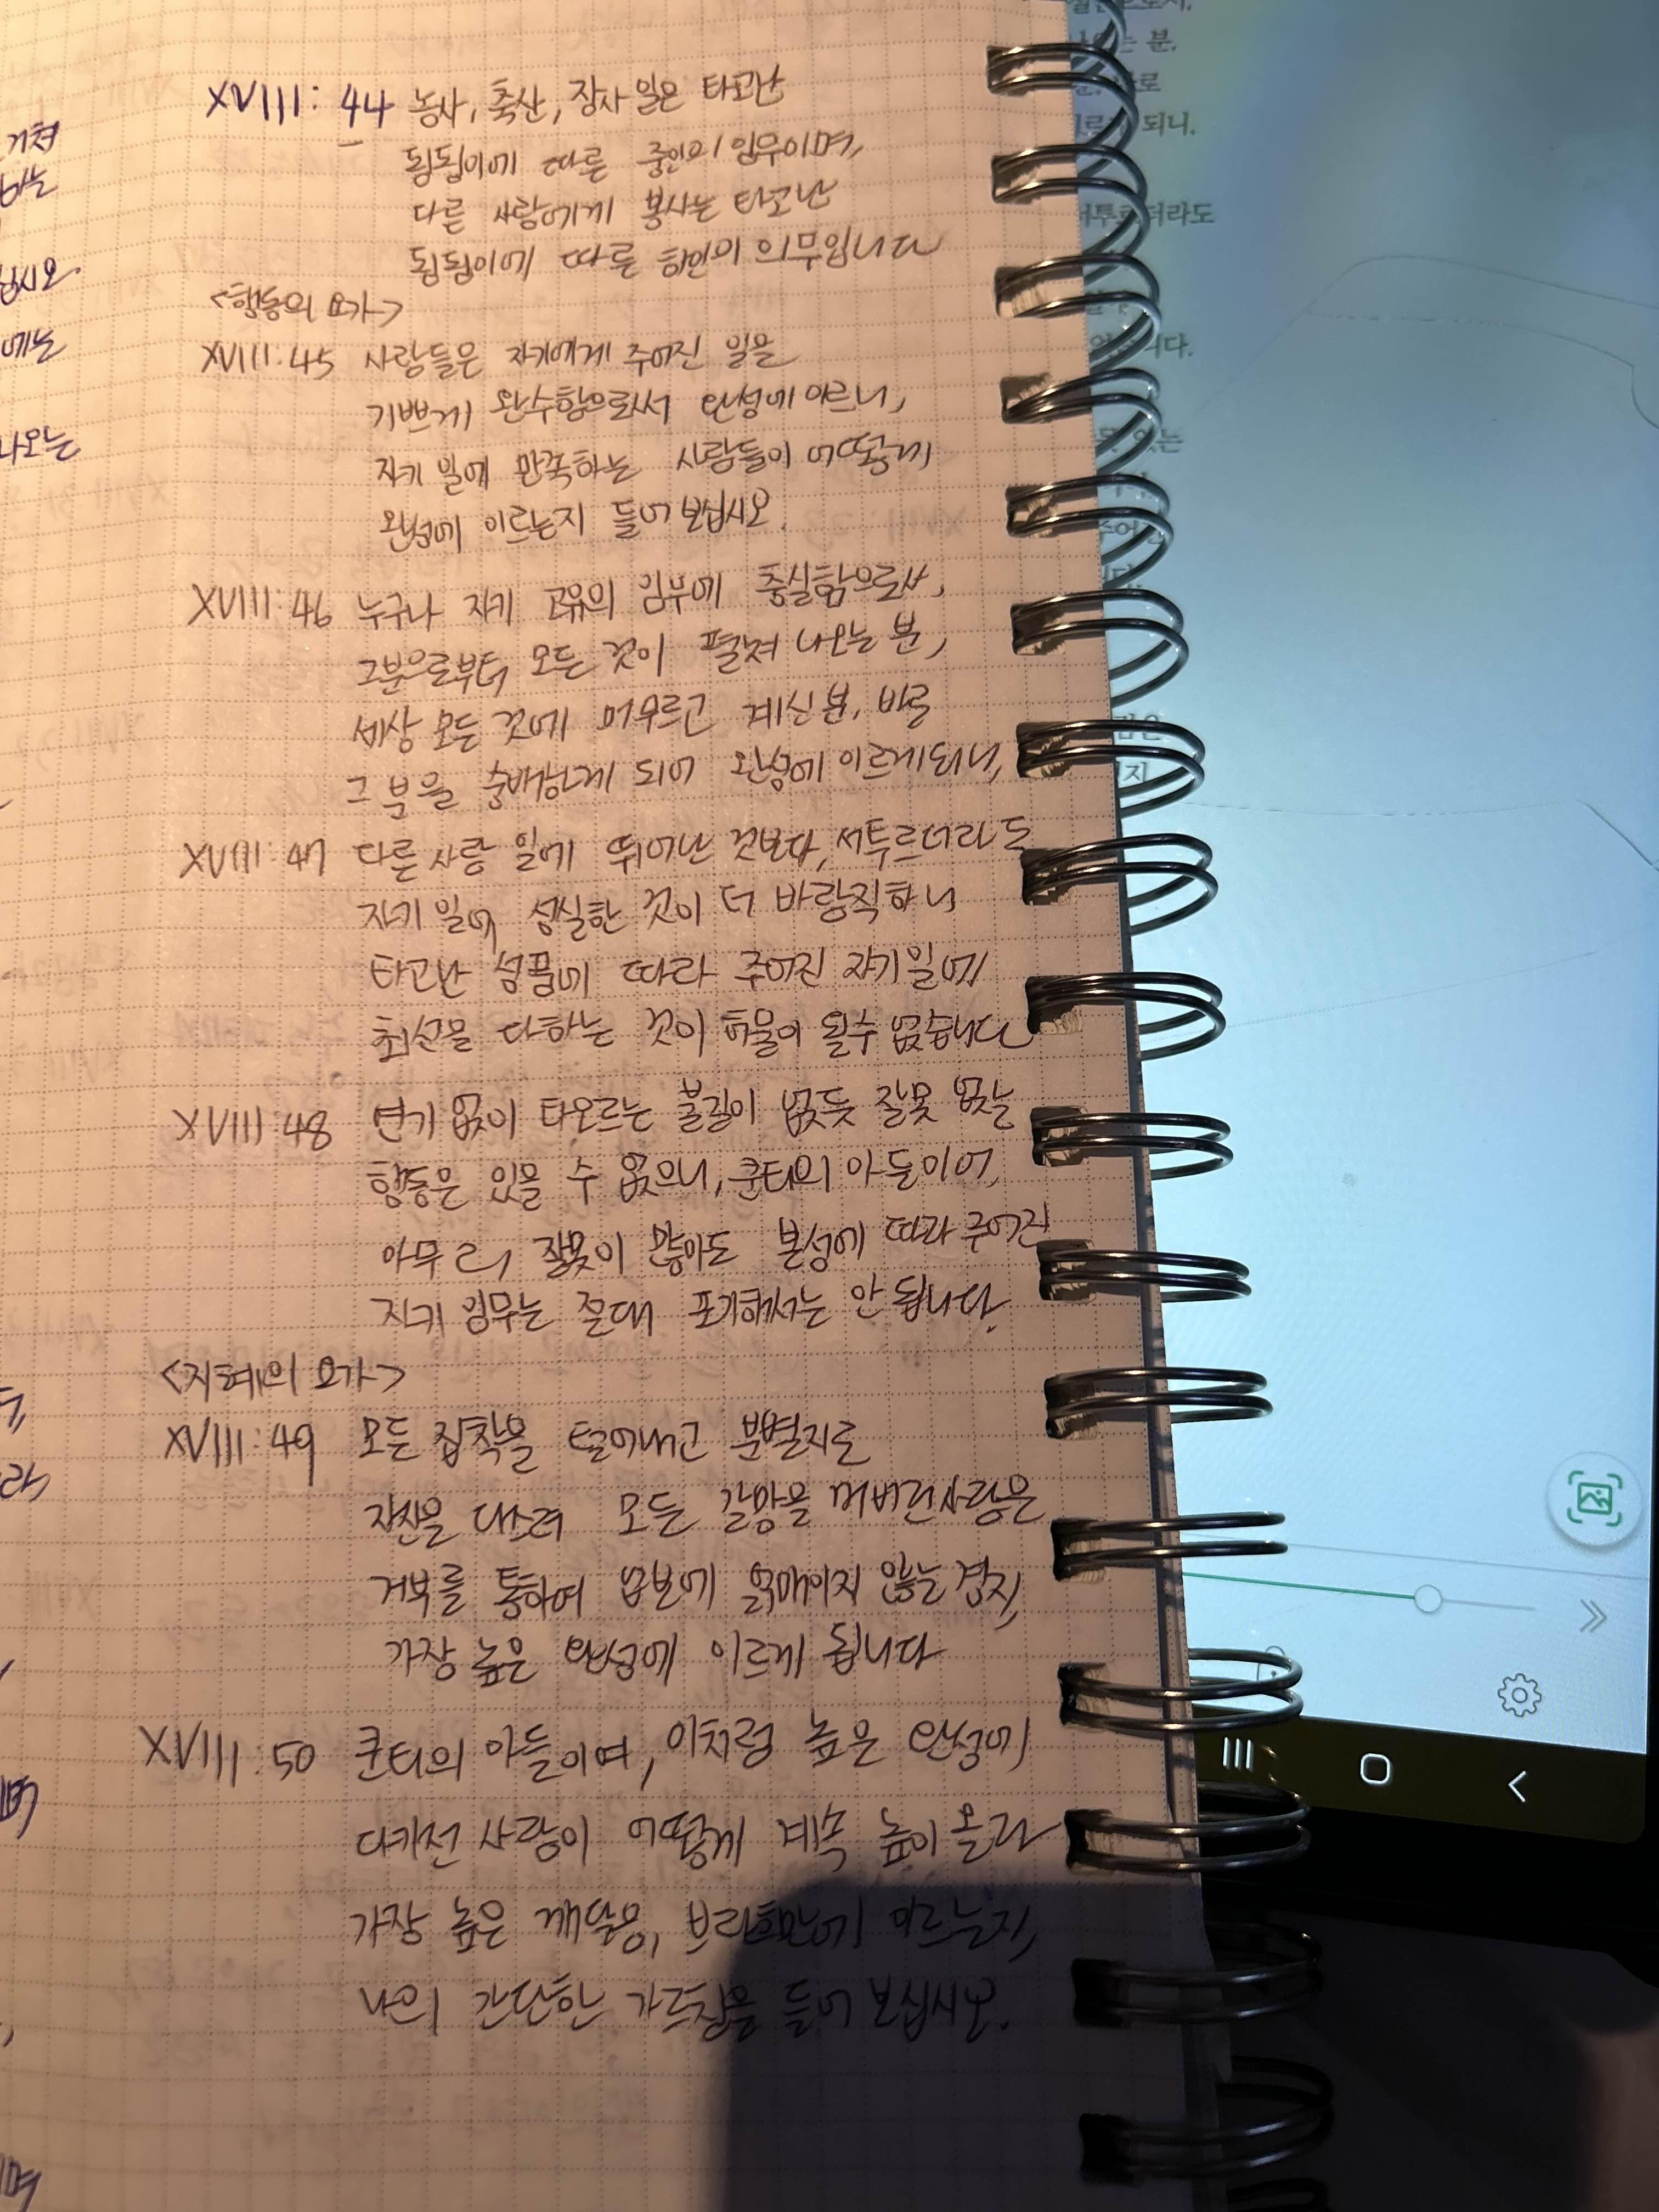 XVIII: 44 농사, 축산, 장사 일은 타고난
됨됨이에 따른 중인의 임무이며,
다른 사람에게 봉사는 타고난
됨됨이에 따른 하인의 의무입니다
<행동의 요가>
XVIII:45 사람들은 자기에게 주어진 일을
기쁘게 완수함으로써 완성에 이르니,
자기 일에 만족하는 사람들이 어떻게
완성에 이르는지 들어 보십시오.
XVIII:46 누구나 자기 고유의 임무에 충실함으로써,
그분으로부터 모든 것이 펼쳐 나오는 분,
세상 모든 것에 머무르고 계신 분, 바로
그 분을 숭배하게 되어 완성에 이르게되니,
XVIII:47 다른 사람 일에 뛰어난 것보다, 서투르더라도
자기 일에 성실한 것이 더 바람직하니
타고난 성품에 따라 주어진 자기일에
최선을 다하는 것이 허물이 될수 없습니다
XVIII:48 연기 없이 타오르는 불길이 없듯 잘못 없는
행동은 있을 수 없으니, 쿤티의 아들이여,
아무리 잘못이 많아도 본성에 따라 주어진
자기 임무는 절대 포기해서는 안 됩니다.
<지혜의 요가>
XVIII:49 모든 집착을 털어내고 분별지로
자신을 다스려 모든 갈망을 버린사람은
거부를 통하여 업보에 얽매이지 않는 경지,
가장 높은 완성에 이르게 됩니다
XVIII:50 쿤티의 아들이여, 이처럼 높은 완성에
다가선 사람이 어떻게 계속 높이 올라
가장 높은 깨달음, 브라흐만에 이르는지,
나의 간단한 가르침을 들어 보십시오.
거쳐
십시오
에는
나오는
분,
되니.
더라도
있는